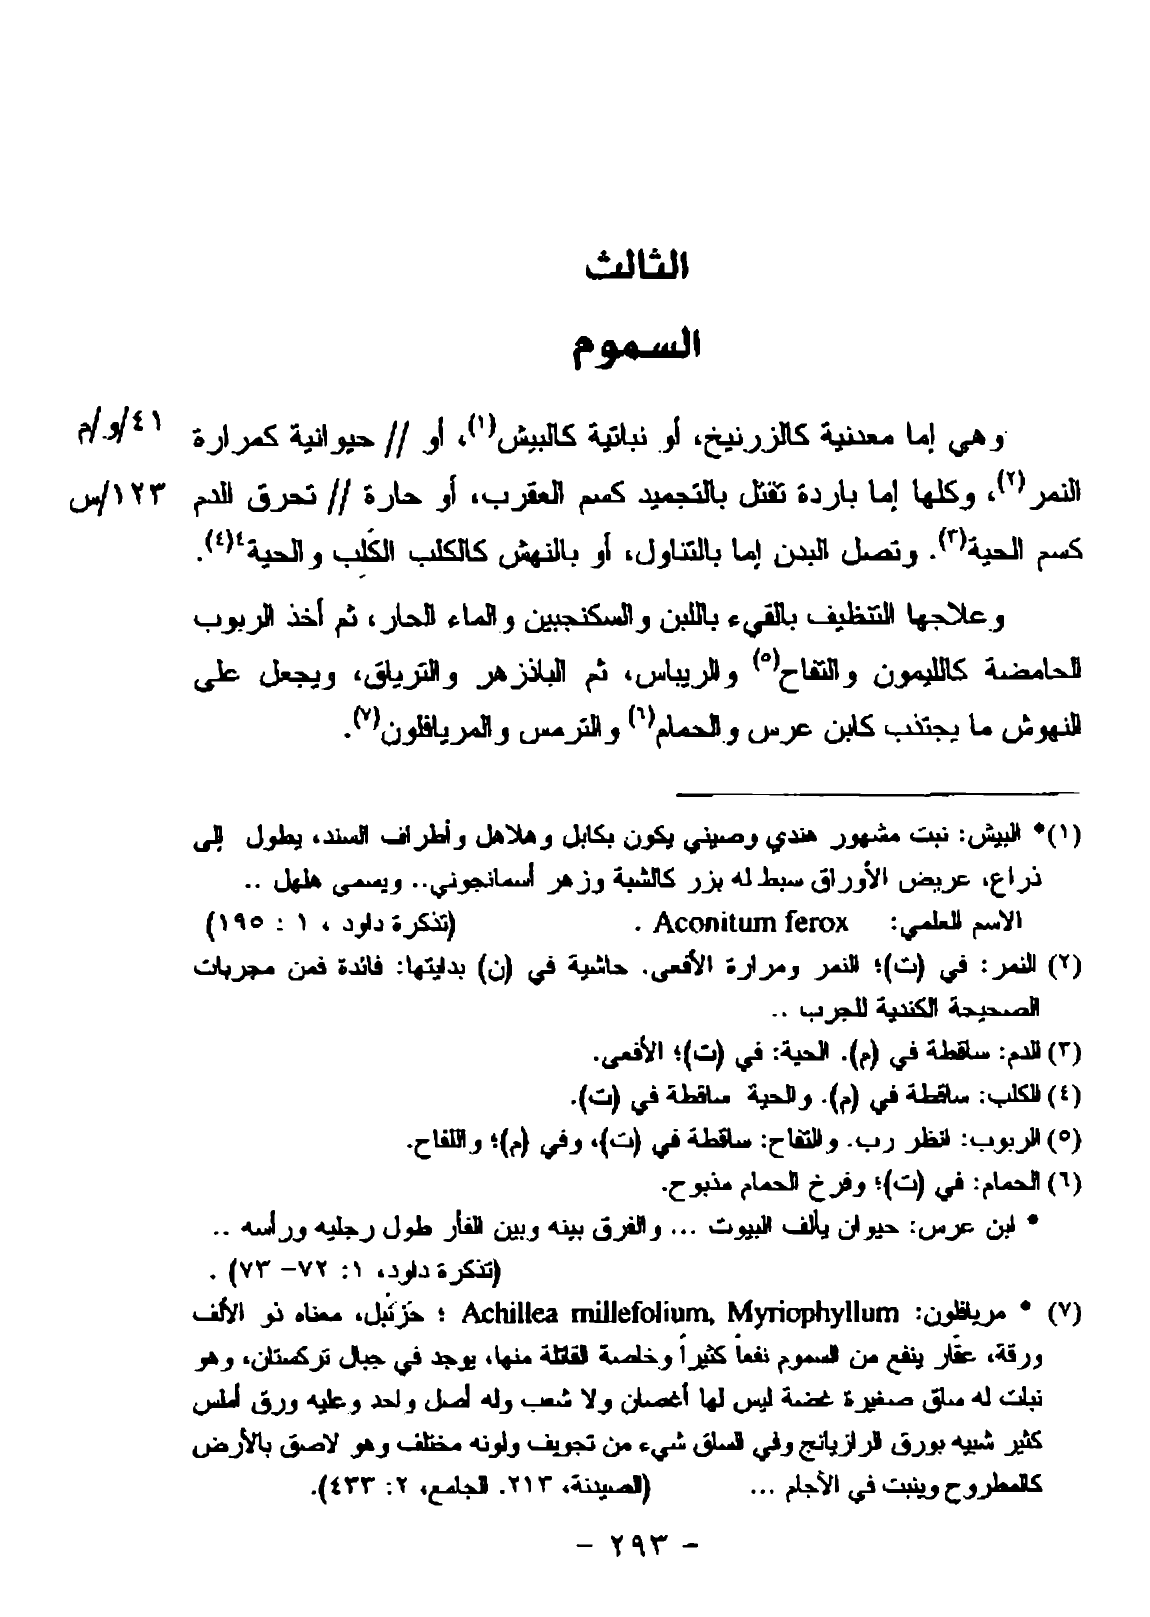 الثالث
السموم
وهي إما معدنية كالزرنيخ، أو نباتية كالبيش(١)، أو // حيوانية كمرارة ٤١/و/م
النمر(٢)، وكلها إما باردة تقتل بالتجميد كسم العقرب، أو حارة // تحرق الدم ١٢٣/س
كسم الحية(٣). وتصل البدن إما بالتناول، أو بالنهش كالكلب الكَلِب والحية٤(٤).
وعلاجها التنظيف بالقيء باللبن والسكنجبين والماء الحار، ثم أخذ الربوب
الحامضة كالليمون والتفاح(٥) والريباس، ثم الباذزهر والترياق، ويجعل على
النهوش ما يجتذب كابن عرس والحمام(٦) والترمس والمريافلون(٧).
(١)* البيش: نبت مشهور هندي وصيني يكون بكابل وهلاهل وأطراف السند، يطول إلى
ذراع، عريض الأوراق سبط له بزر كالشبة وزهر أسمانجوني.. ويسمى هلهل ..
الاسم العلمي: Aconitum ferox . (تذكرة داود ، ١ : ١٩٥)
(٢) النمر: في (ت)؛ النمر ومرارة الأفعى. حاشية في (ن) بدايتها: فائدة فمن مجربات
الصحيحة الكندية للجرب ..
(٣) الدم: ساقطة في (م). الحية: في (ت)؛ الأفعى.
(٤) الكلب: ساقطة في (م). والحية ساقطة في (ت).
(٥) الربوب: انظر رب. والتفاح: ساقطة في (ت)، وفي (م)؛ واللفاح.
(٦) الحمام: في (ت)؛ وفرخ الحمام مذبوح.
* ابن عرس: حيوان يألف البيوت ... والفرق بينه وبين الفأر طول رجليه ورأسه ..
(تذكرة داود، ١: ٧٢– ٧٣) .
(٧) * مريافلون: Achillea millefolium, Myriophyllum ؛ حَزَنْبل، معناه ذو الألف
ورقة، عقّار ينفع من السموم نفعاً كثيراً وخاصة القاتلة منها، يوجد في جبال تركستان، وهو
نبات له ساق صغيرة غضة ليس لها أغصان ولا شعب وله أصل واحد وعليه ورق أملس
كثير شبيه بورق الرازيانج وفي الساق شيء من تجويف ولونه مختلف وهو لاصق بالأرض
كالمطروح وينبت في الآجام ... (الصيدنة، ٢١٣. الجامع، ٢: ٤٣٣).
- ٢٩٣ -